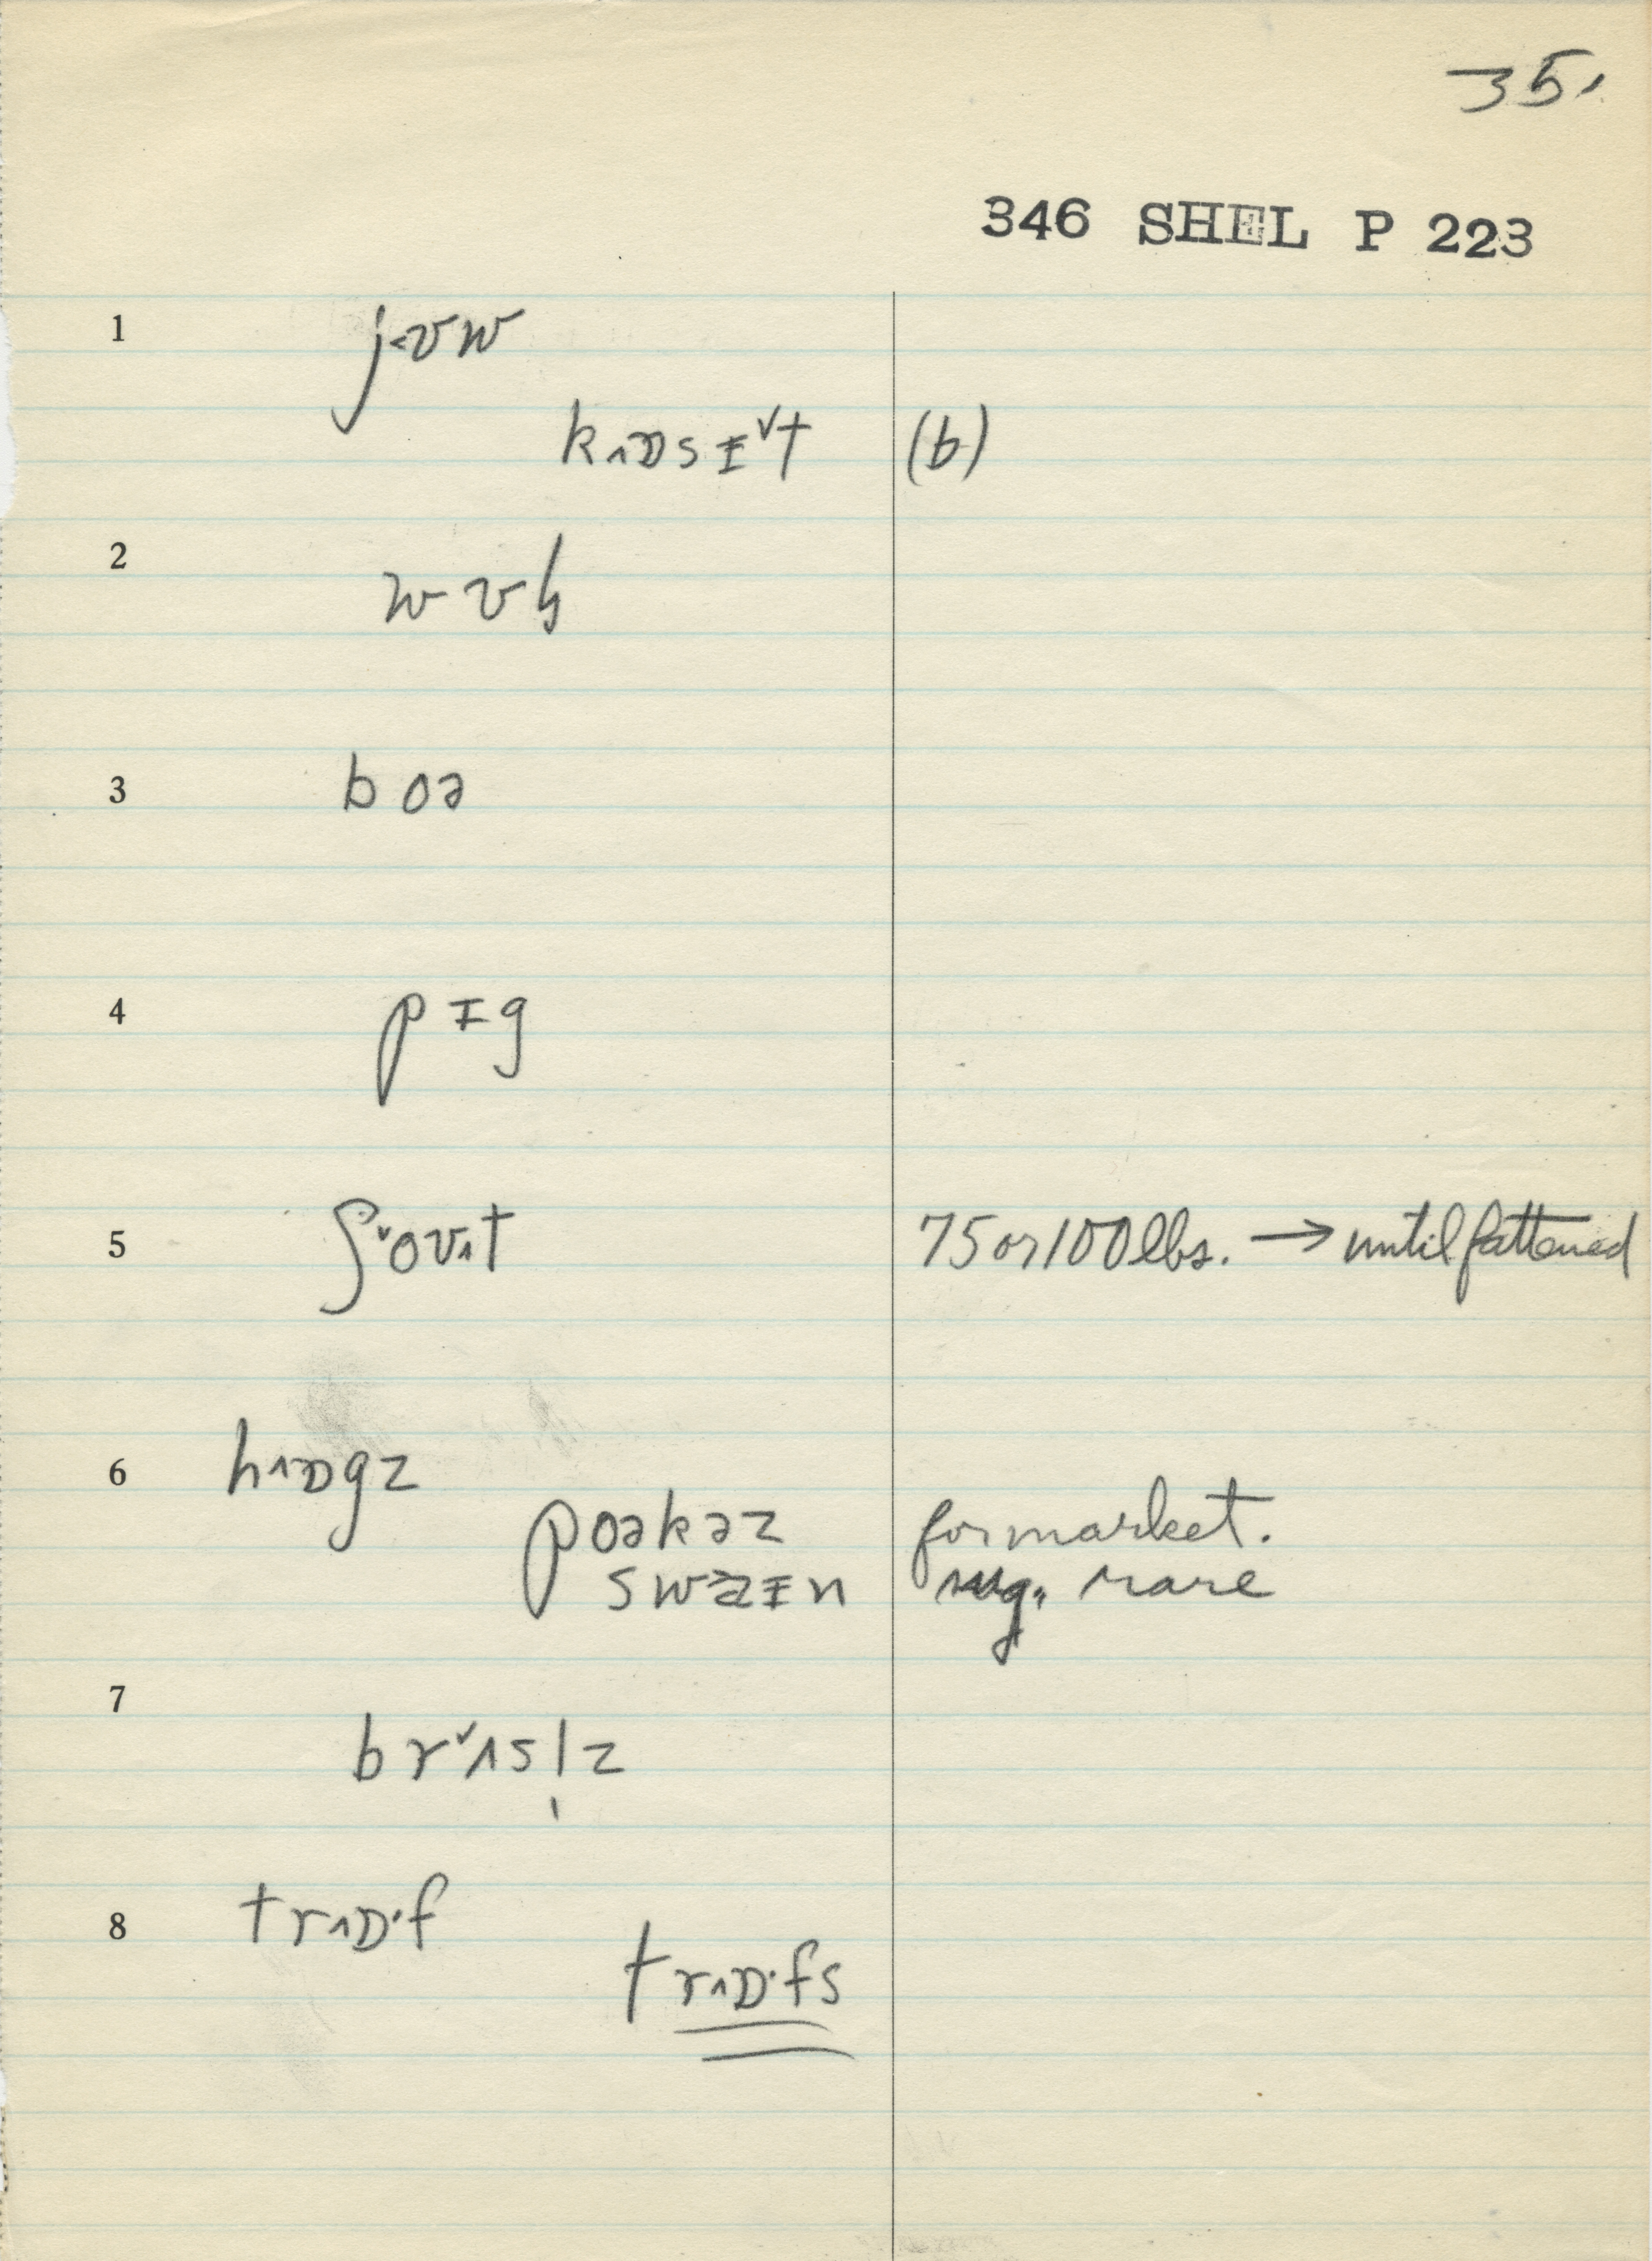 35.
346 SHEL P 223
1 j˂ʊw
kɒ˄sɪ˅t (b)
2 wʊɦ
3 boə
4 pɪg
5 ʃ˅oʊ˄t 75 or 100 lbs. → until fattened
6 h˄ɒgz
poəkəz for market.
swaɪn sug. rare
7 br˅ʌsl̩z
8 tr˄ɒ·f
tr˄ɒ·fs